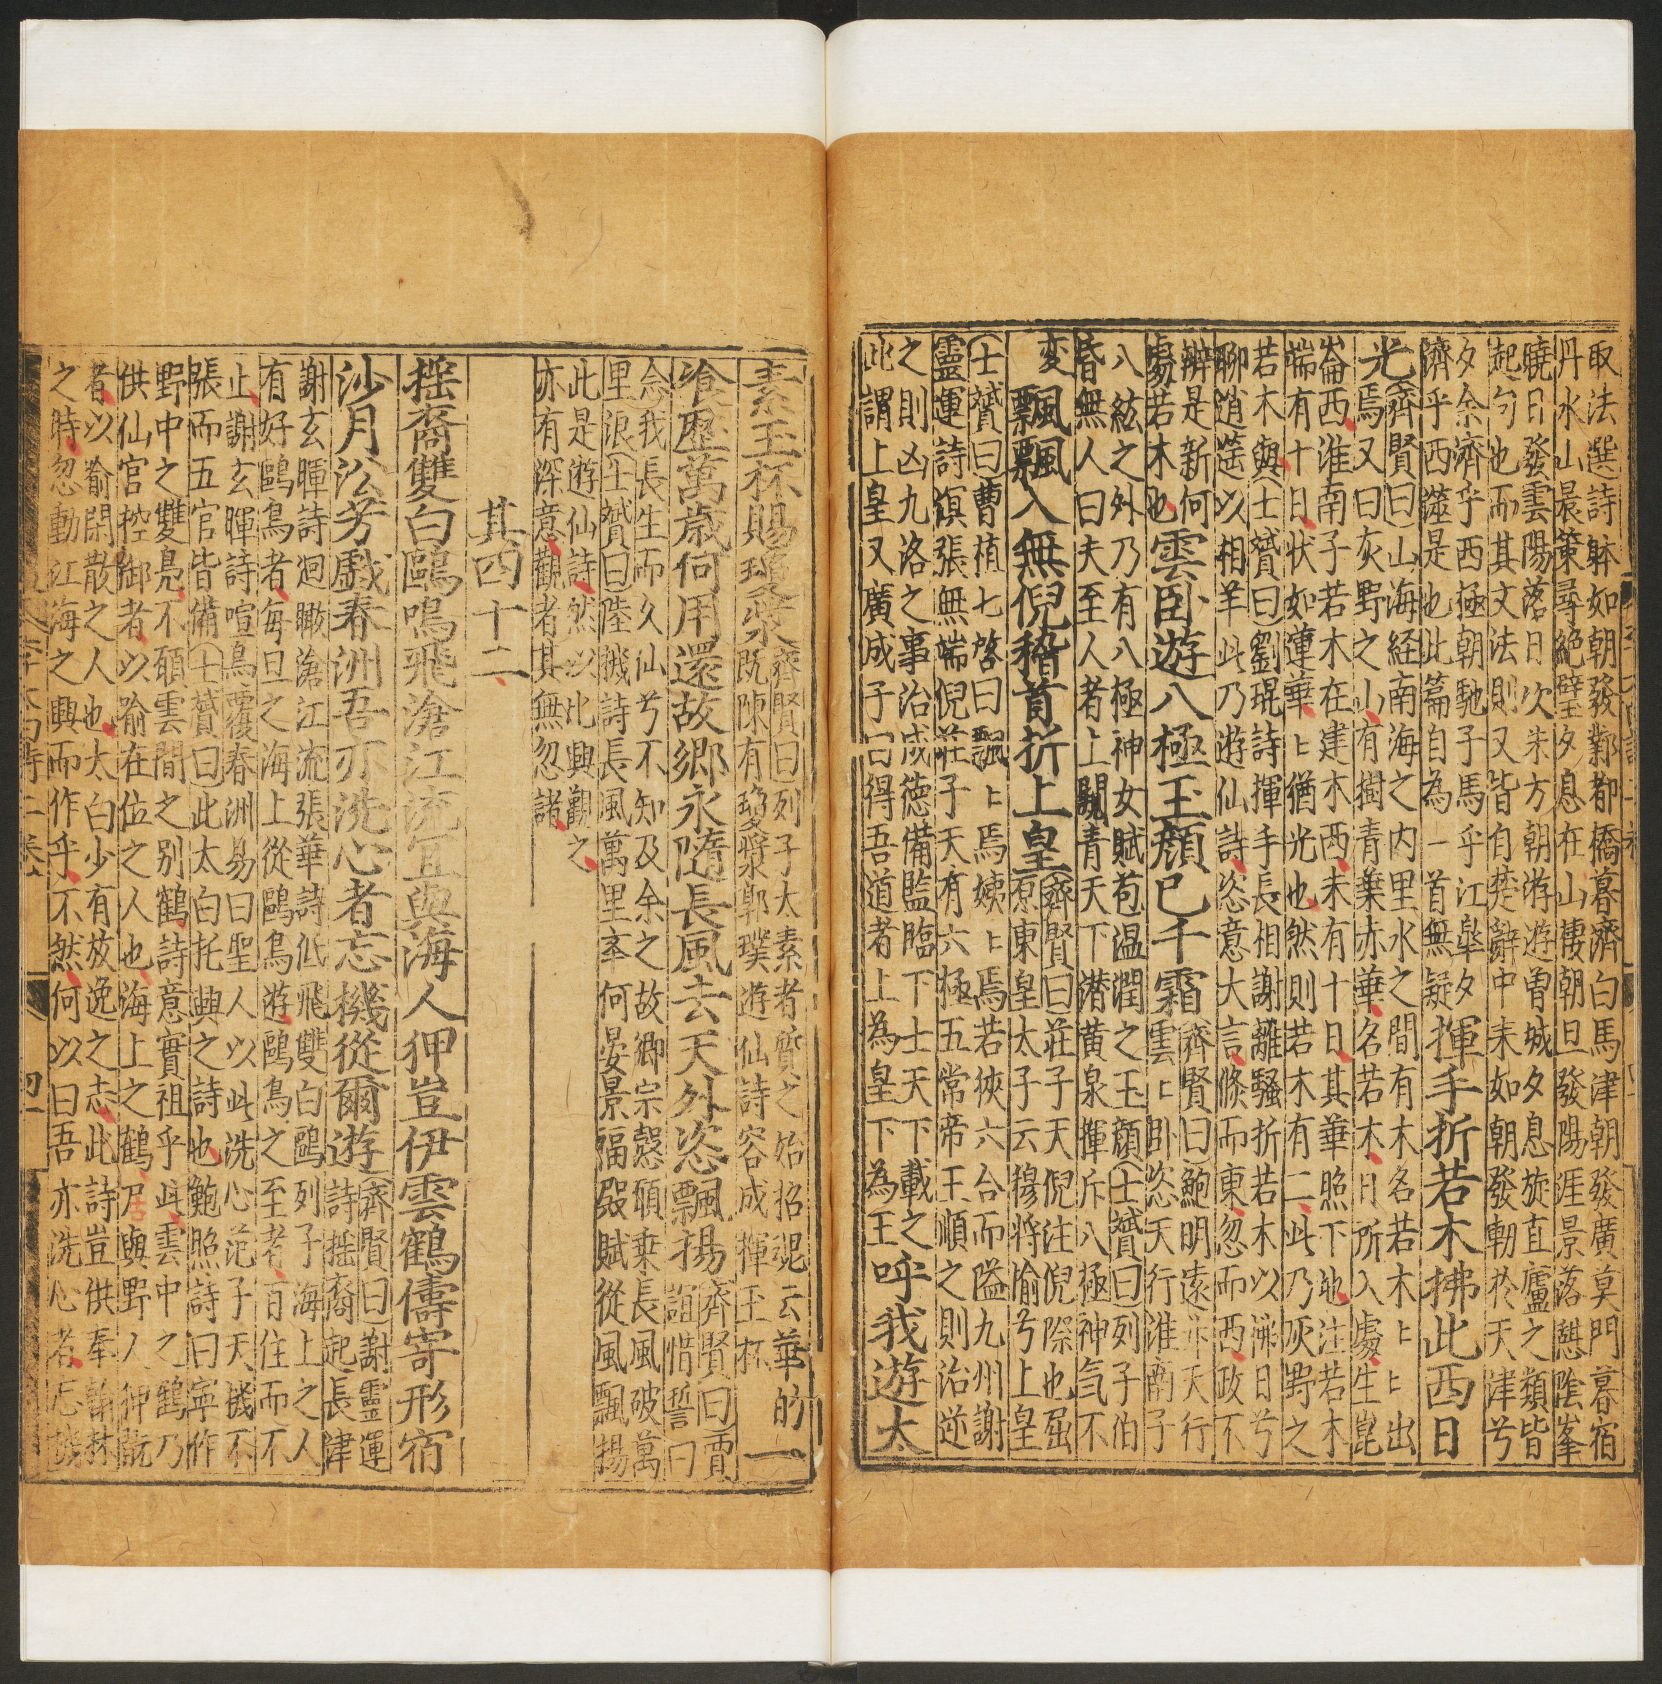 取法選詩躰如朝發鄴都橋暮濟白馬津朝發廣莫門暮宿
丹水山晨策尋絕壁夕息在山棲朝旦發陽涯景落憩陰峯
曉日發雲陽落日次朱方朝游遊曽城夕息旋直廬之類皆
起句也而其文法則又皆自楚辭中来如朝發軔於天津兮
夕余濟乎西極朝馳子馬乎江皐夕
濟乎西澨是也此篇自為一首無疑
揮手折若木拂此西日
光
齊賢曰山海経南海之内里水之間有木名若木〻出
焉又曰灰野之山有樹青葉赤華名若木日所入處生崑
崙西淮南子若木在建木西末有十日其華照下地注若木
端有十日状如連華〻猶光也然則若木有二此乃灰野之
若木與士贇曰劉琨詩揮手長相謝離騷折若木以拂日兮
聊逍遥以相羊此乃遊仙詩恣意大言倏而東忽而西政不
辨是新何
處若木也
雲卧遊八極玉顔已千霜
齊賢曰鮑明遠升天行
雲〻卧恣天行淮南子
八紘之外乃有八極神女賦苞温潤之玉顔士贇曰列子伯
昏無人曰夫至人者上闚青天下潜黄泉揮斥八極神气不
变
飄飄入無倪稽首祈上皇
齊賢曰莊子天倪注倪際也屈
原東皇太子云穆将愉兮上皇
士贇曰曹植七啓曰飄〻焉㛄〻焉若狹六合而隘九州謝
靈運詩溟漲無端倪莊子天有六極五常帝王順之則治逆
之則凶九洛之事治成徳備監臨下士天下載之
此謂上皇又廣成子曰得吾道者上為皇下為王
呼我遊太
素玉杯賜瓊漿
齊賢曰列子太素者質之始招䰟云華酌
既陳有瓊漿郭璞遊仙詩容成揮玉杯
一
飡歷萬歳何用還故郷永隨長風去天外恣飄揚
齊賢曰賈
誼惜誓曰
念我長生而久仙兮不知及余之故郷宗慤願乗長風破萬
里浪士贇曰陸機詩長風萬里牽何晏景福殿賦從風飄揚
此是遊仙詩然以比興觀之
亦有深意觀者其無忽諸
其四十二
揺裔雙白鷗鳴飛滄江流宜與海人狎豈伊雲鶴儔寄形宿
沙月㳂芳戲春洲吾亦洗心者忘機從爾遊
齊賢曰謝靈運
詩揺裔起長津
謝玄暉詩迴瞰滄江流張華詩低飛雙白鷗列子海上之人
有好鷗鳥者每旦之海上從鷗鳥游鷗鳥之至者百住而不
止謝玄暉詩喧鳥覆春洲易曰聖人以此洗心范子天機不
張而五官皆備士贇曰此太白托興之詩也鮑照詩曰寧作
野中之雙鳬不願雲間之别鶴詩意實祖乎此雲中之鶴乃
供仙官控御者以喻在位之人也海上之鶴乃與野人狎翫
者以喻閑散之人也太白少有放逸之志此詩豈供奉翰林
之時忽動江海之興而作乎不然何以曰吾亦洗心者忘機